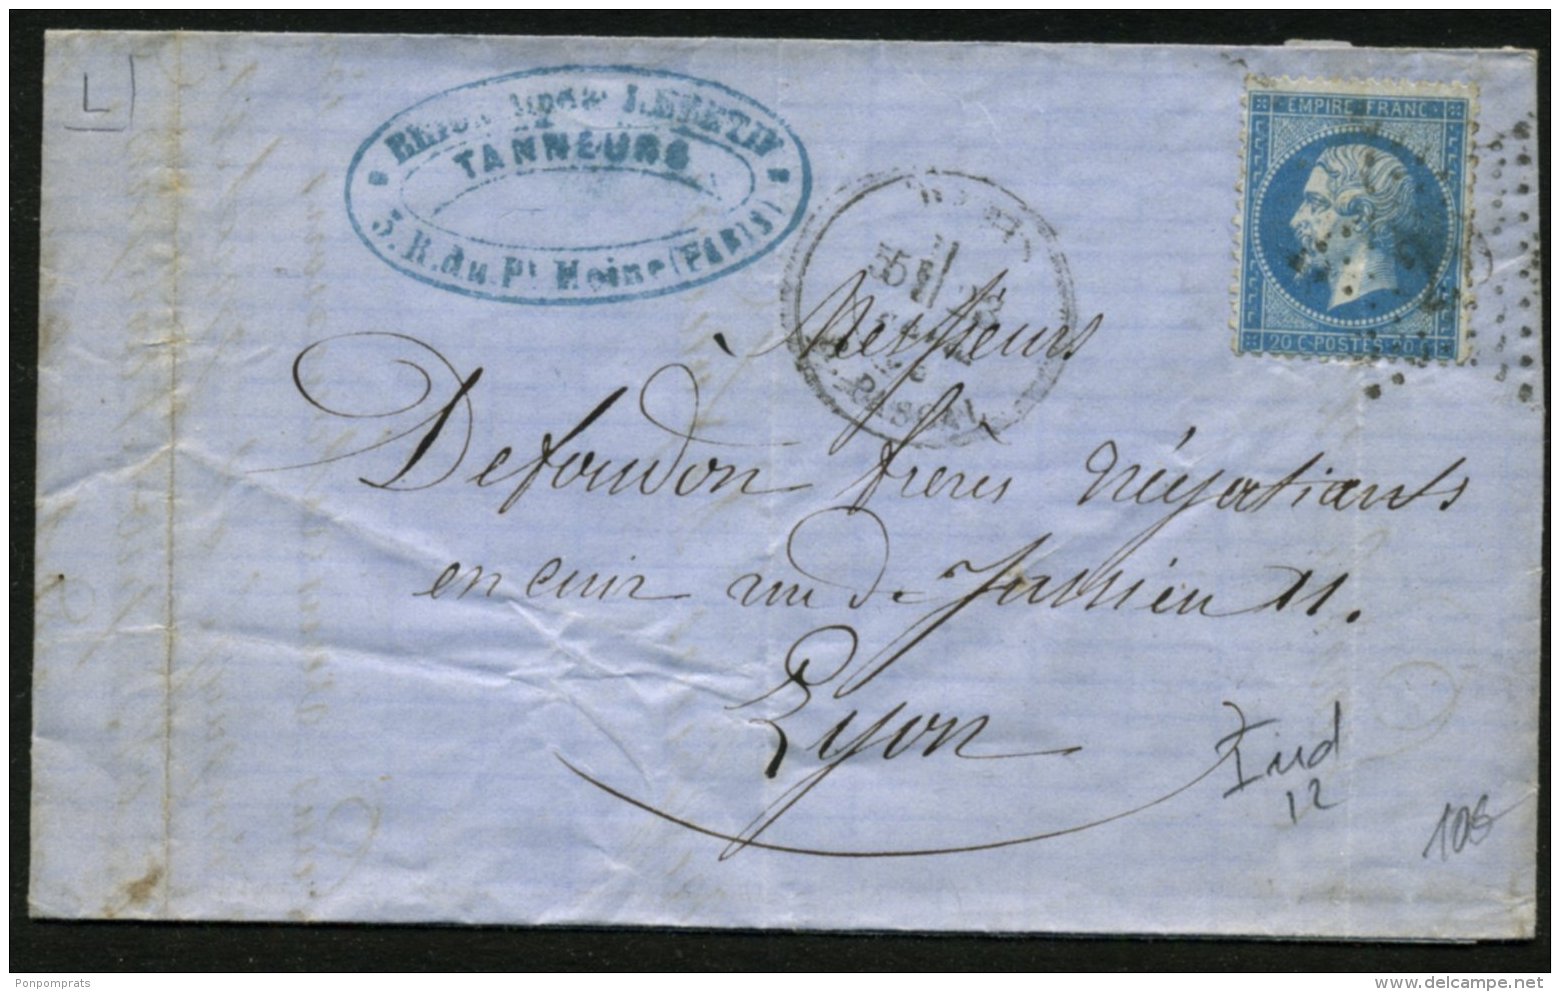 L
TANNEURS
5. R. du Pt Moine (PARIS)
EMPIRE FRANC
20 C. POSTES 20 C.
5E
R. PASCAL
Messieurs
Defoudon frères Négotiants
en cuir rue de Jussieu 11.
Lyon
Ind
12
Ponpomprats
delcampe.net